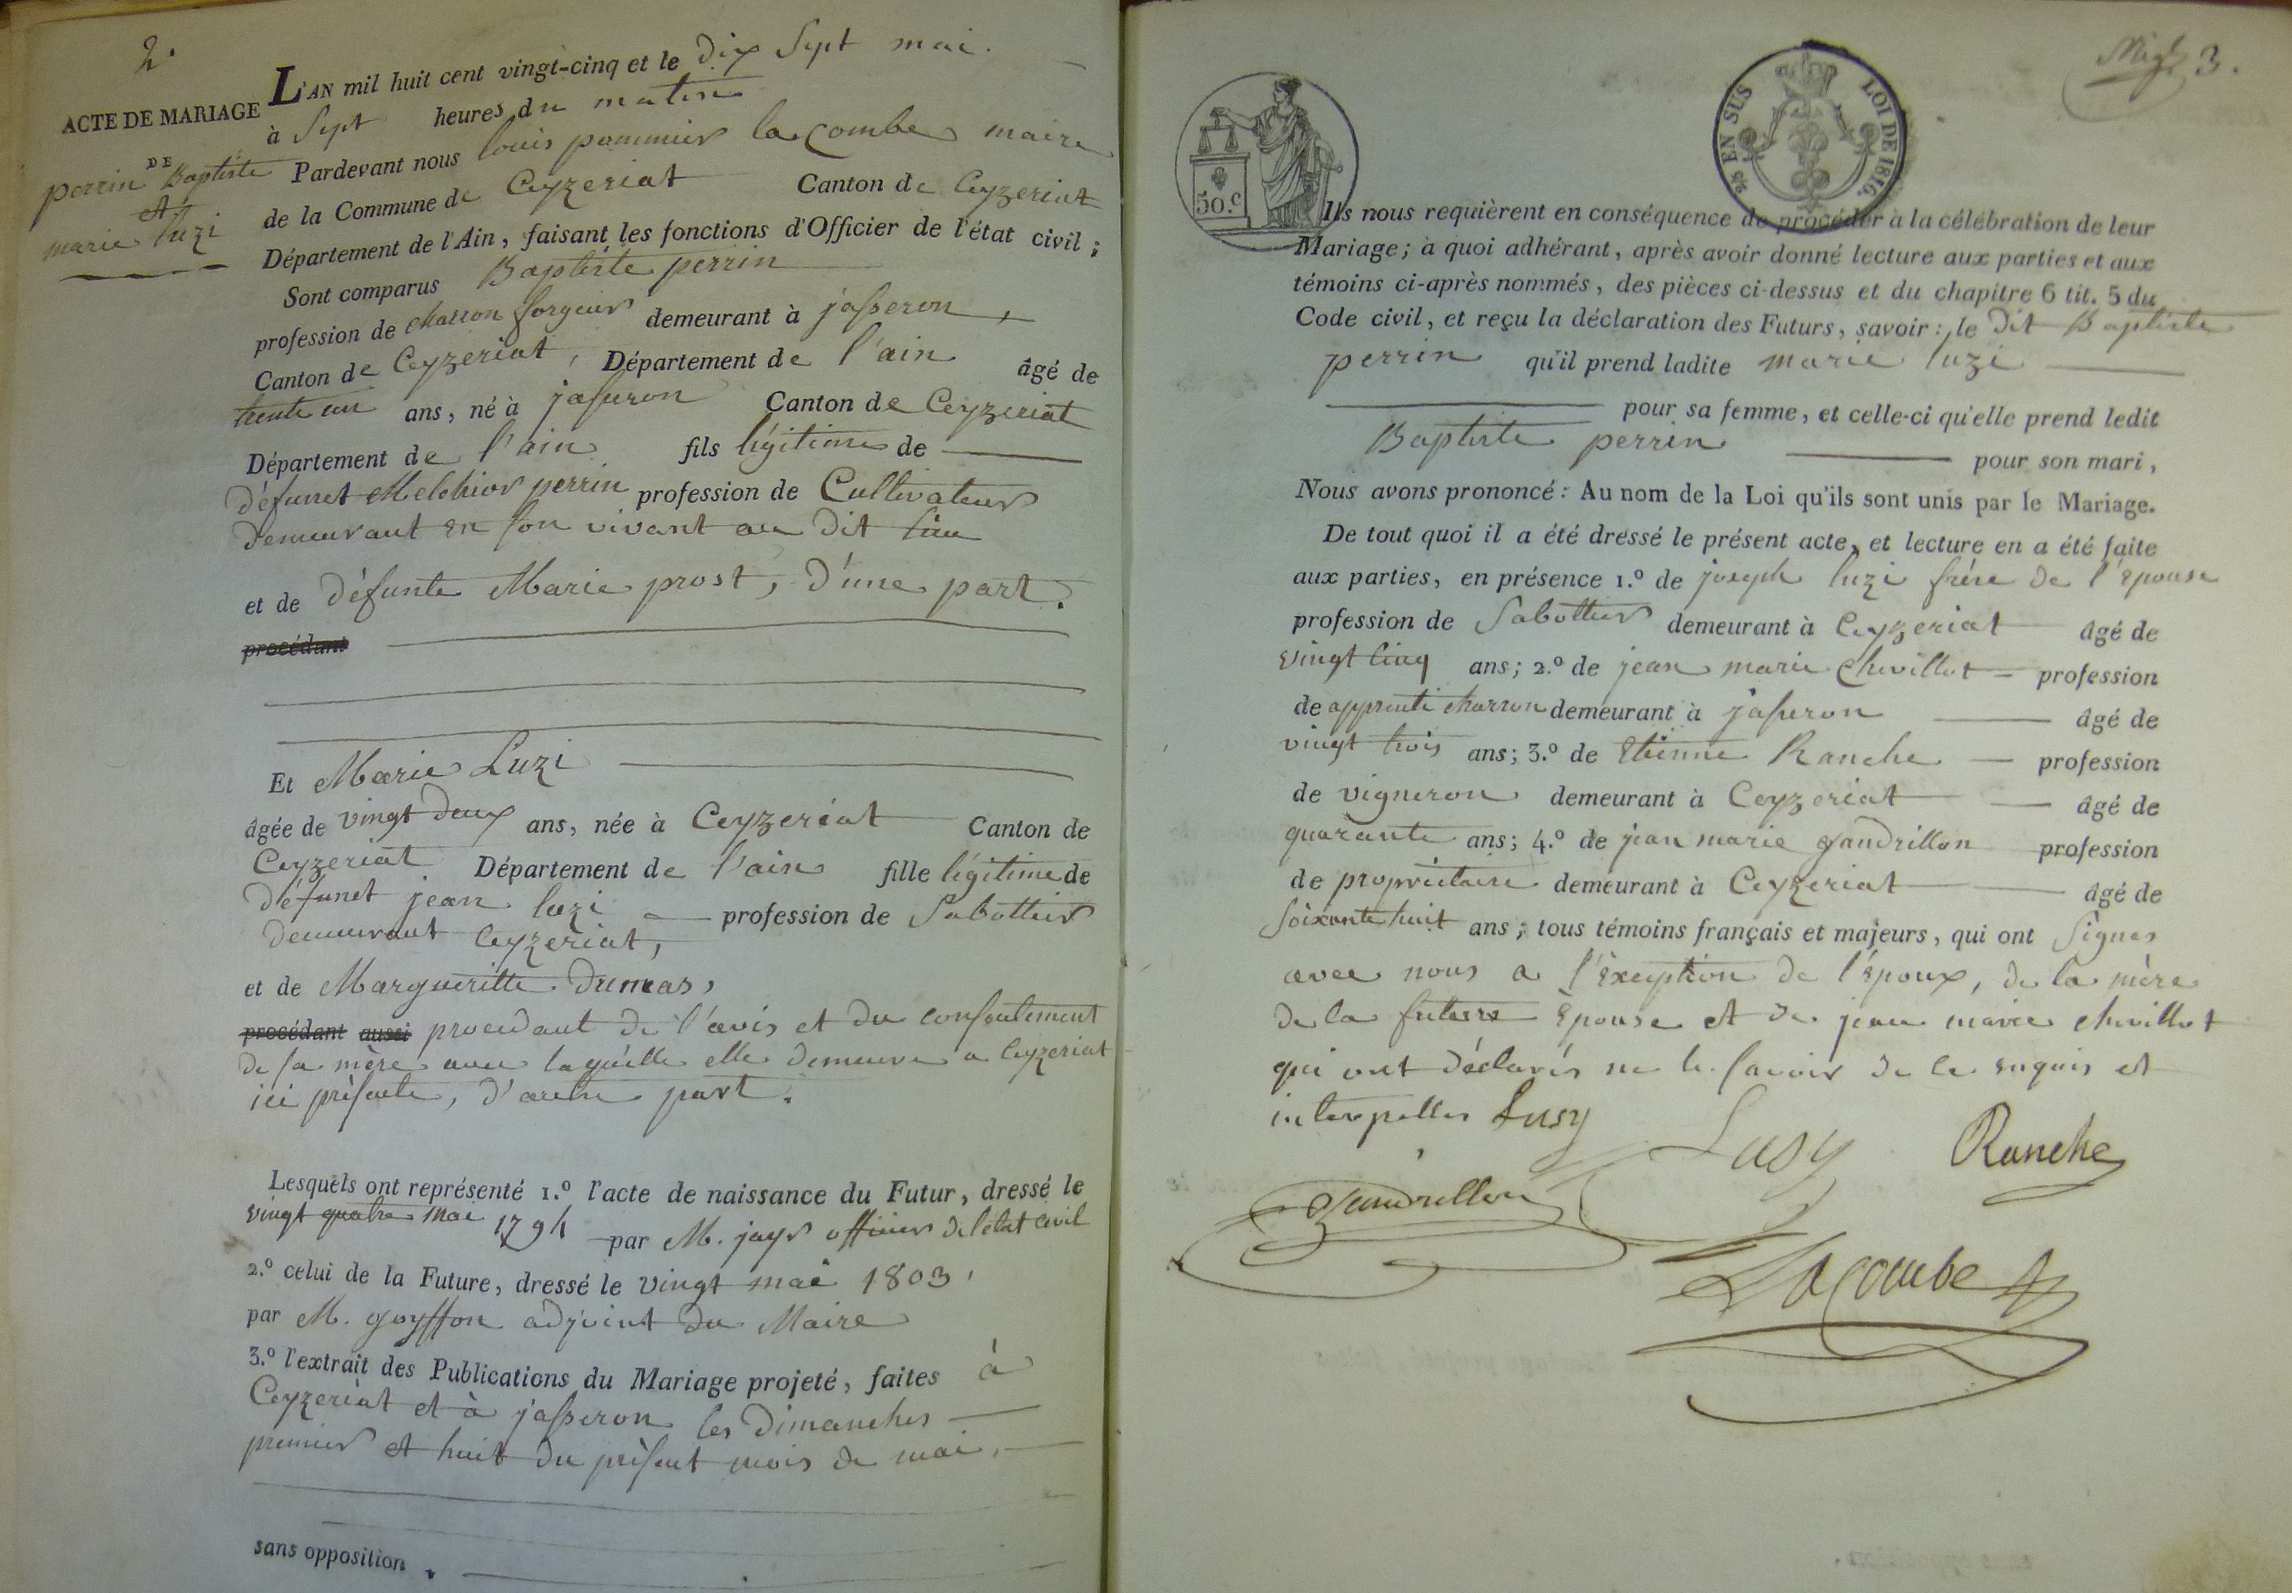 2.
L'AN mil huit cent vingt-cinq et le dix Sept mai.
ACTE DE MARIAGE
à Sept heures du matin
DE
Pardevant nous louis pommier lacombe maire
perrin Baptiste
et
marie luzi
de la Commune de Ceyzeriat Canton de Ceyzeriat
Département de l'Ain, faisant les fonctions d'Officier de l'état civil;
Sont comparus Baptiste perrin
profession de charron forgeur demeurant à jasseron,
Canton de Ceyzeriat, Département de l'ain âgé de
trente un ans, né à jasseron Canton de Ceyzeriat
Département de l'ain fils légitime de
défunct Melchior perrin profession de Cultivateur
demeurant en son vivant au dit lieu
et de défunte Marie prost, d'une part.
procédant
Et Marie Luzi
âgée de vingt deux ans, née à Ceyzeriat Canton de
Ceyzeriat Département de l'ain fille légitime de
défunct jean luzi profession de Sabottier
demeurant Ceyzeriat,
et de Margueritte Dumas,
procédant aussi procedant de l'avis et du consentement
de sa mère avec laquelle elle demeure a Ceyzeriat
ici présente, d'autre part.
Lesquels ont représenté 1.º l'acte de naissance du Futur, dressé le
vingt quatre mai 1794 par M. jayr officier de l'état civil
2.º celui de la Future, dressé le vingt mai 1803,
par M. goyffon adjoint du Maire
3.º l'extrait des Publications du Mariage projeté, faites à
Ceyzeriat et à jasseron les dimanches
premier et huit du présent mois de mai,
sans opposition.
3.
50.c
25 EN SUS LOI DE 1816.
Ils nous requièrent en conséquence de procéder à la célébration de leur
Mariage; à quoi adhérant, après avoir donné lecture aux parties et aux
témoins ci-après nommés, des pièces ci-dessus et du chapitre 6 tit. 5 du
Code civil, et reçu la déclaration des Futurs, savoir: le dit Baptiste
perrin qu'il prend ladite marie luzi
pour sa femme, et celle-ci qu'elle prend ledit
Baptiste perrin pour son mari,
Nous avons prononcé: Au nom de la Loi qu'ils sont unis par le Mariage.
De tout quoi il a été dressé le présent acte, et lecture en a été faite
aux parties, en présence 1.º de joseph luzi frére de l'épouse
profession de Sabottier demeurant à Ceyzeriat âgé de
vingt cinq ans; 2.º de jean marie chevillot profession
de apprenti charron demeurant à jasseron âgé de
vingt trois ans; 3.º de Etienne Ranche profession
de vigneron demeurant à Ceyzeriat âgé de
quarante ans; 4.º de jean marie gandrillon profession
de propriétaire demeurant à Ceyzeriat âgé de
soixante huit ans; tous témoins français et majeurs, qui ont signes
avec nous a l'exception de l'époux, de la mère
de la future Epouse et de jean marie chevillot
qui ont déclarés ne le savoir de ce enquis et
interpelles Lusy
Lusy Ranche
Gandrillon
Lacombe